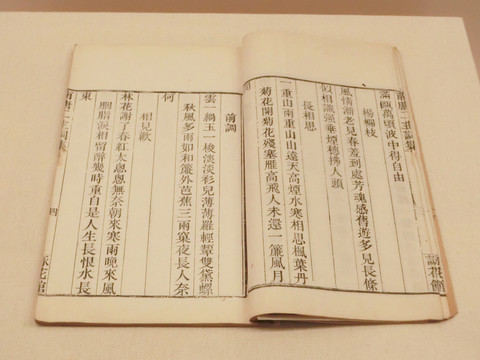 南唐二主詞集
滿甌萬頃波中得自由
楊柳枝
風情漸老見春羞到處芳魂感舊遊多見長條
似相識強垂煙穗拂人頭
長相思
一重山兩重山山遠天高煙水寒相思楓葉丹
菊花開菊花殘塞雁高飛人未還一簾風月
閒
前調
雲一緺玉一梭淡淡衫兒薄薄羅輕顰雙黛螺
秋風多雨如和簾外芭蕉三兩窠夜長人奈
何
相見歡
林花謝了春紅太悤悤無奈朝來寒雨晚來風
胭脂淚相留醉幾時重自是人生長恨水長
東
南唐二主詞集
四
花館